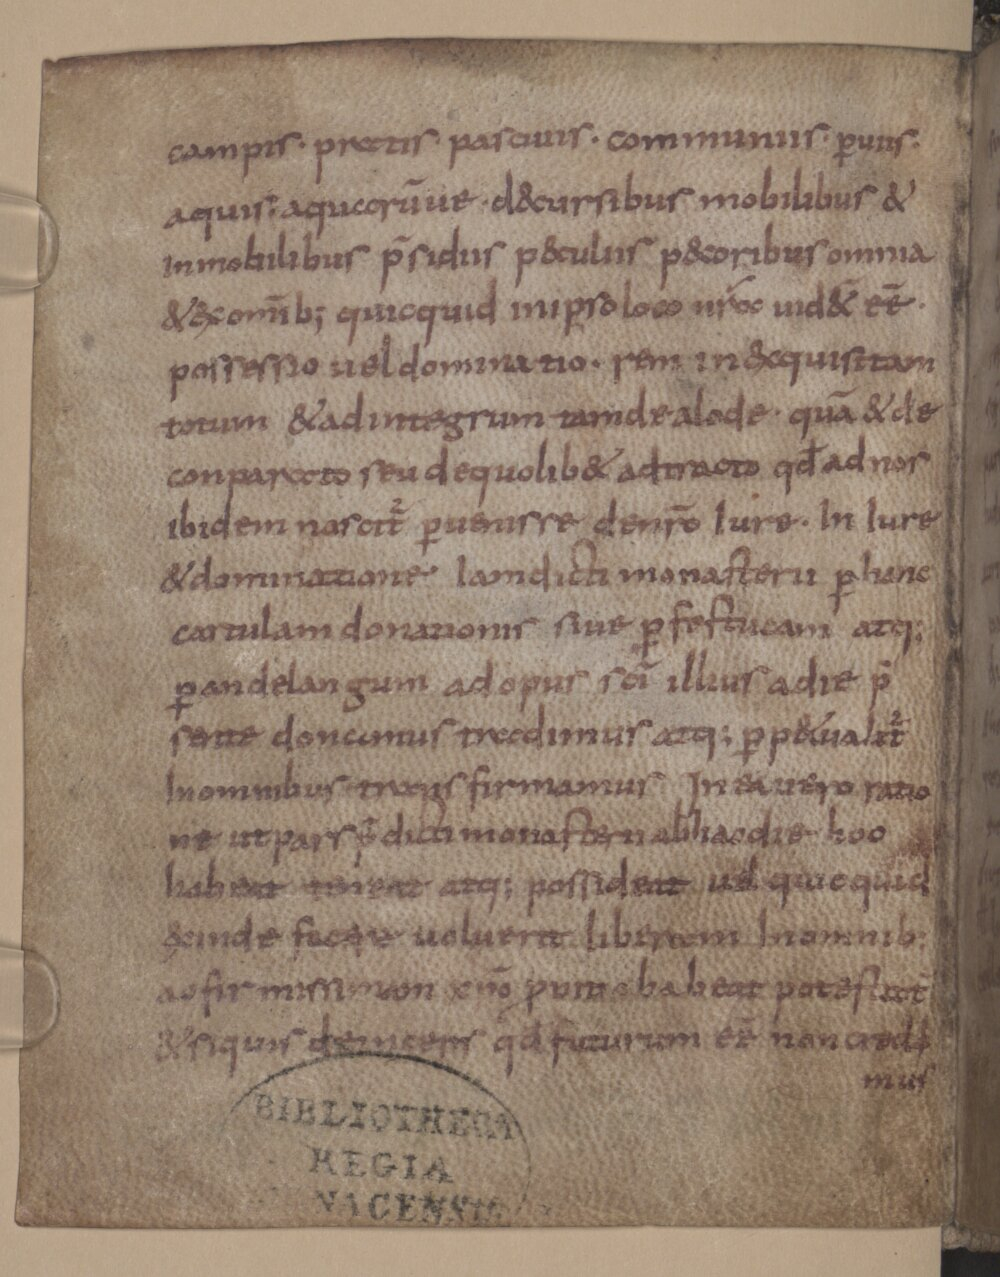 campis · pratis · pascuis · communiis · p̱uiis ·
aquis · aquarū ue · d&cursibus mobilibus &
inmobilibus p̄sidiis p&culiis p&coribus omnia
& ex omīb; quicquid in ipso loco nr̄a uid& eē ·
possessio uel dominatio · rem in exquisitam
totum & ad integrum tam de alode · quā & de
conparato seu de quolib& adtracto qd̄ ad nos
ibidem noscit̄ ꝑuenisse de nr̄o Iure · In Iure
& dominatione Iamdicti monasterii ꝑ hanc
cartulam donationis siue ꝑ festucam atq;
ꝑ andelangum ad opus sc̄i illius a die p̄
sente donamus tradimus atq; ꝑp&ualit̄
In omnibus transfirmamus In ea uero ratio
ne ut pars p̄dicti monasterii ab hac die hoc
habeat teneat atq; possideat uel quicquid
exinde facere uoluerit liberam In omnib;
ac firmissimam habeat potestat̄
& si quis deinceps qd̄ futurum eē non credi
mus
BIBLIOTHECA
REGIA
MONACENSIS